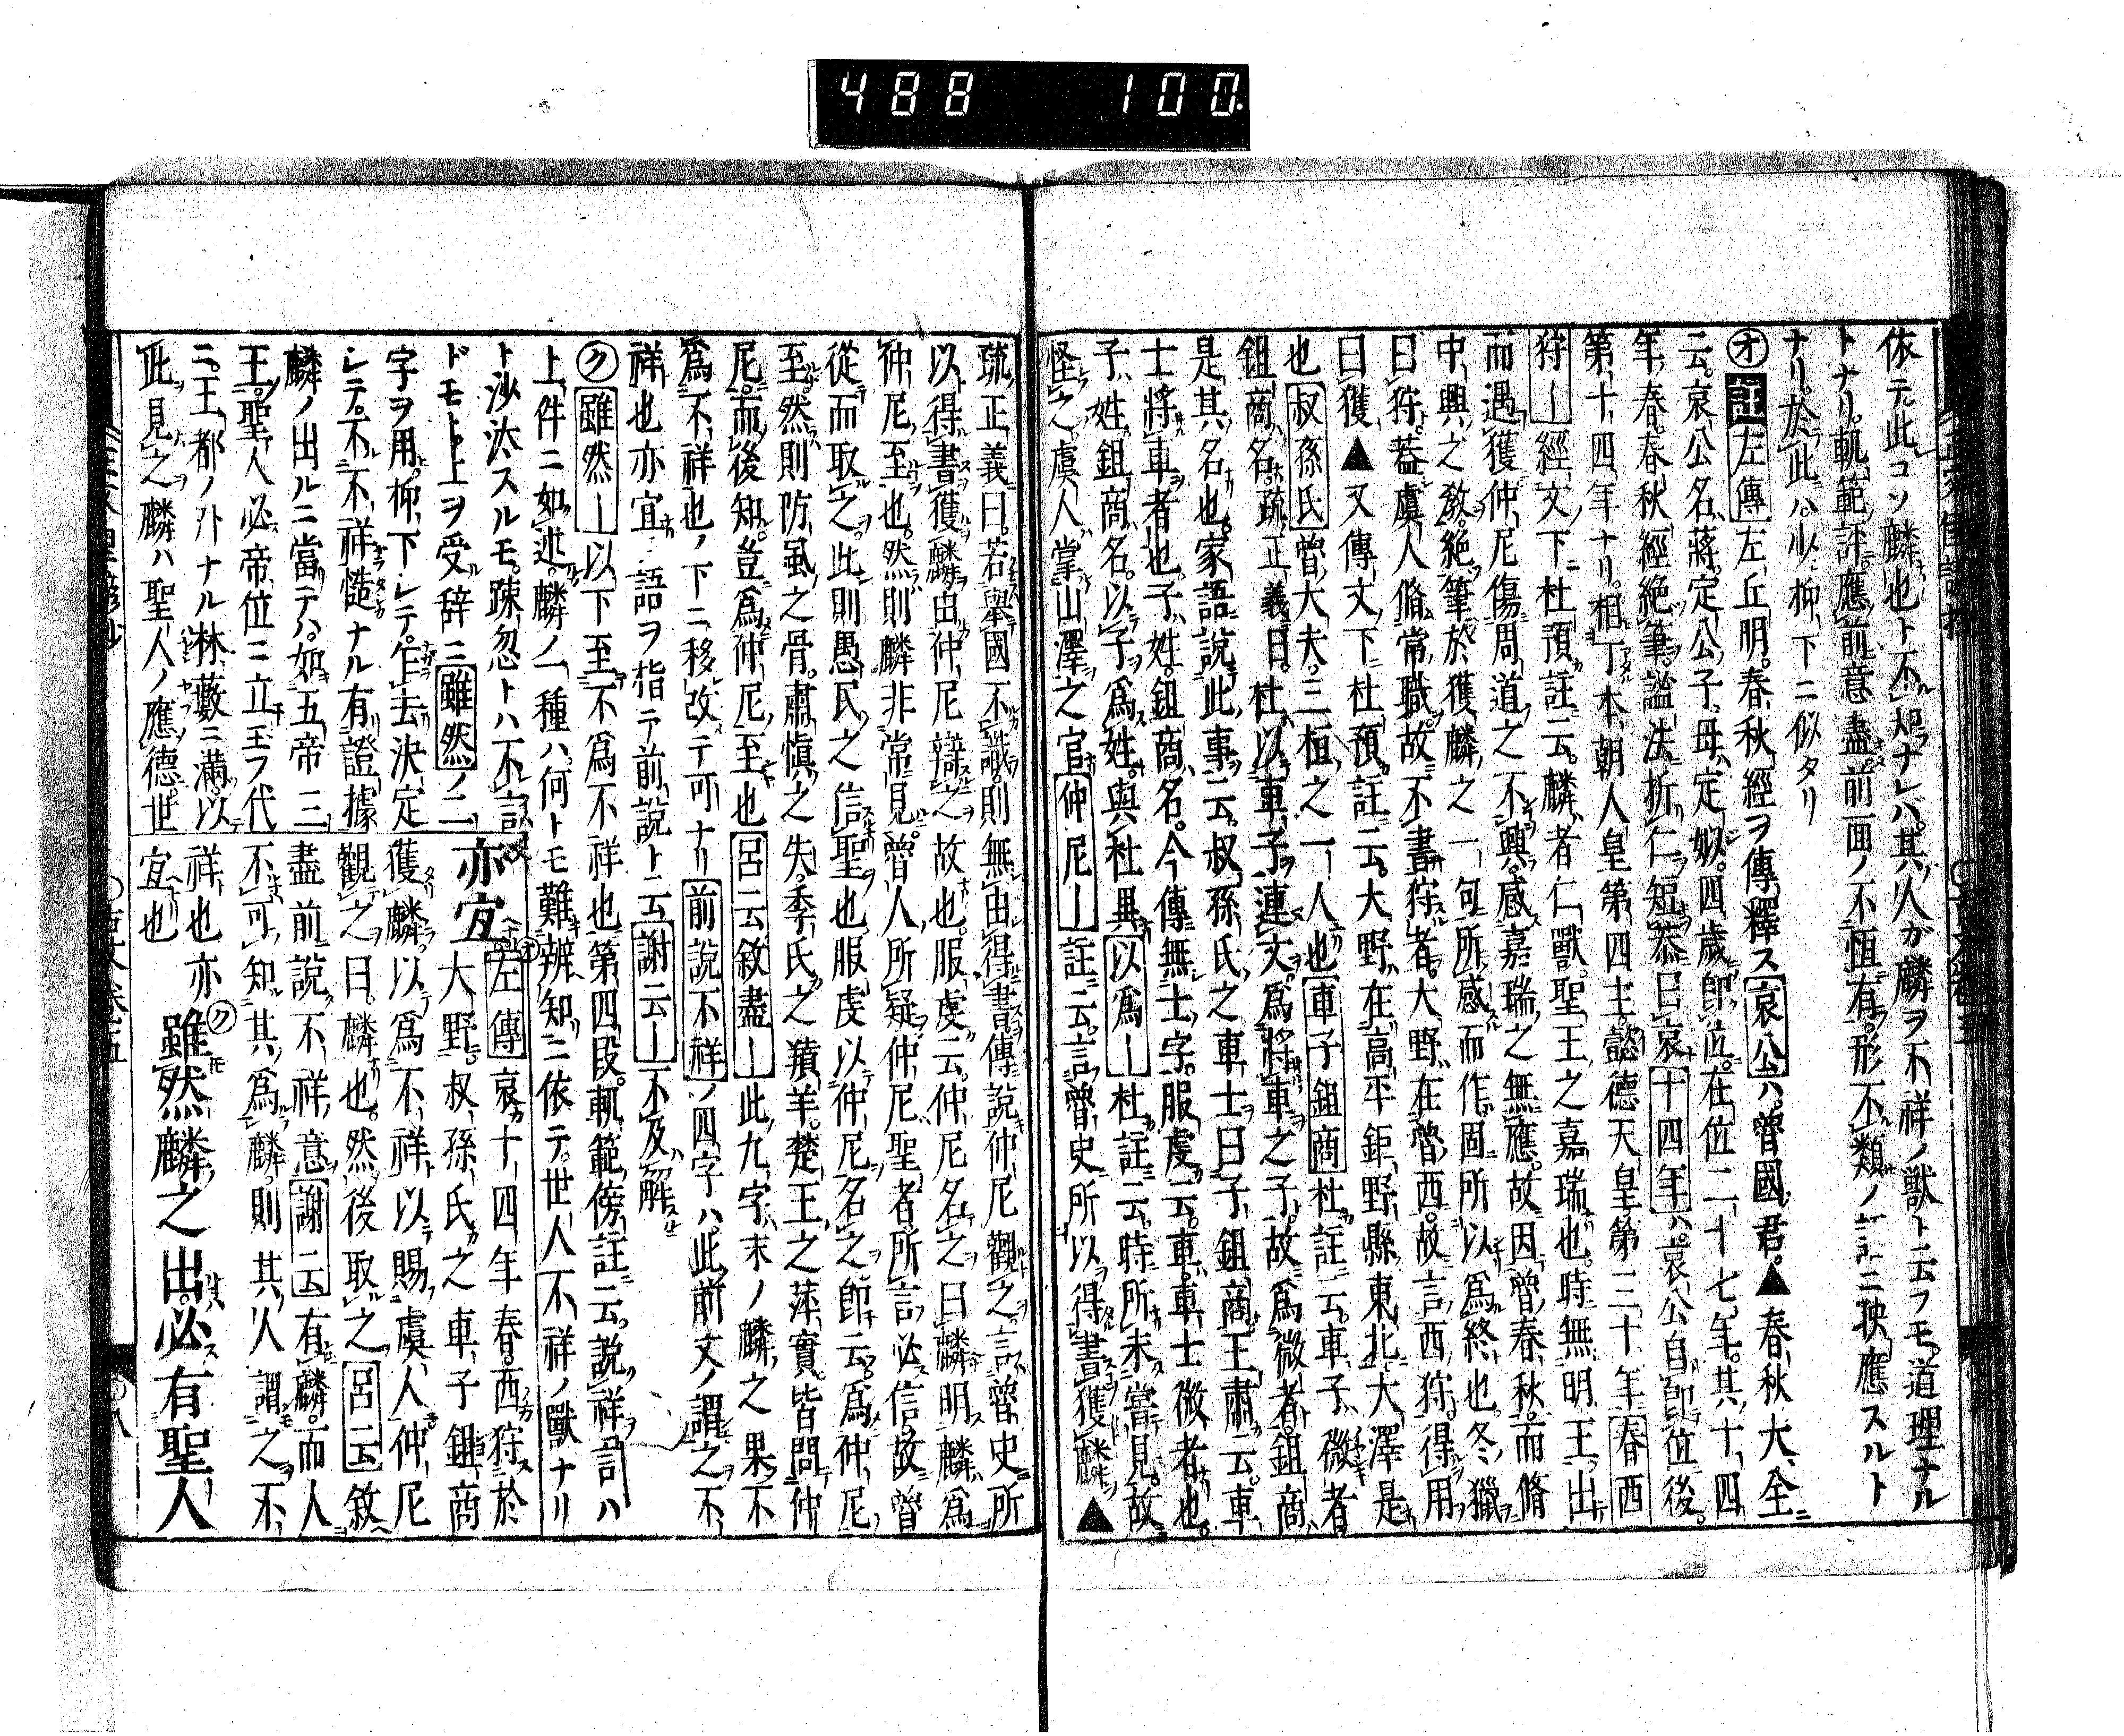 488 100
依テ此コソ麟也ト不知ナレバ其人ガ麟ヲ不祥ノ獣ト云フモ道理ナル
トナリ。軌範評應前意盡前画ノ不恒有形不類ノ言ニ映應スルト
ナリ。於此ハ少抑下ニ似タリ
オ註左傳左丘明。春秋經ヲ傳釋ス哀公ハ魯國君。▲春秋大全
云。哀公名蔣。定公子。母定姒。四歳即位。在位二十七年。其十四
年春。春秋經絶筆。謚法折仁短恭曰哀十四年ハ哀公自即位後。
第十四年ナリ。相丁本朝人皇第四主懿德天皇第三十年春西
狩ー經文下杜預註云。麟者仁獸。聖王之嘉瑞也。時無明王出
而遇獲仲尼傷周道之不興。感嘉瑞之無應。故因魯春秋。而脩
中興之敎。絶筆於獲麟之一句所感而作。固所以爲終也。冬獵
曰狩。蓋虞人脩常職。故不書狩者。大野在魯西。故言西狩。得用
曰獲▲又傳文下杜預註云。大野在高平鉅野縣東北大澤是
也叔孫氏魯大夫。三桓之一人也車子鉏商杜註云。車子微者
鉏商名。疏正義曰。杜以車子連文。爲將車之子。故爲微者。鉏商
是其名也。家語說此事云叔孫氏之車士曰子鉏商王肅云。車
士將車者也。子姓。鉏商名。今傳無士字。服虔云。車車士微者也。
子姓鉏商名。以子爲姓。與杜異以爲ー杜註云。時所未嘗見。故
怪之虞人掌山澤之官仲尼ー註云。言魯史所以得書獲麟▲
疏正義曰。若舉國不識。則無由得書傳說仲尼觀之言魯史所
以得書獲麟由仲尼辯之故也。服虔云。仲尼名之曰麟明麟爲
仲尼至也。然則麟非常見。魯人所疑仲尼聖者所言必信。故魯
從而取之。此則愚民之信聖也。服虔以仲尼名之即云。爲仲尼
至然則防風之骨。肅愼之矢季氏之羵羊。楚王之萍實皆問仲
尼。而後知。豈爲仲尼至也呂云敘盡ー此九字ハ末ノ麟之果不
爲不祥也ノ下ニ移改テ可ナリ前說不祥ノ四字ハ此前文ノ謂之不
祥也亦宜ノ語ヲ指テ前說ト云謝云ー不及解
ク雖然ー以下至不爲不祥也第四段。軌範傍註云說祥言ハ
上件ニ如述麟ノ一種ハ何トモ難辨知ニ依テ世人不祥ノ獸ナリ
ト沙汰スルモ疎忽トハ不言
ドモト上ヲ受辞ニ雖然ノ二
字ヲ用抑下レテ乍去決定
レテ不不祥慥ナル有證據
麟ノ出ルニ當テハ如五帝三
王聖人必帝位ニ立玉フ代
ニ王都ノ外ナル林藪ニ滿以
此見之麟ハ聖人ノ應德世
亦宜左傳哀十四年春。西狩於
大野。叔孫氏之車子鉏商
獲麟以爲不祥以賜虞人仲尼
觀之曰。麟也。然後取之呂云敘
盡前說不祥意謝云有麟而人
不可知其爲麟則其人謂之不
祥也亦
宜也
ク雖然麟之出必有聖人